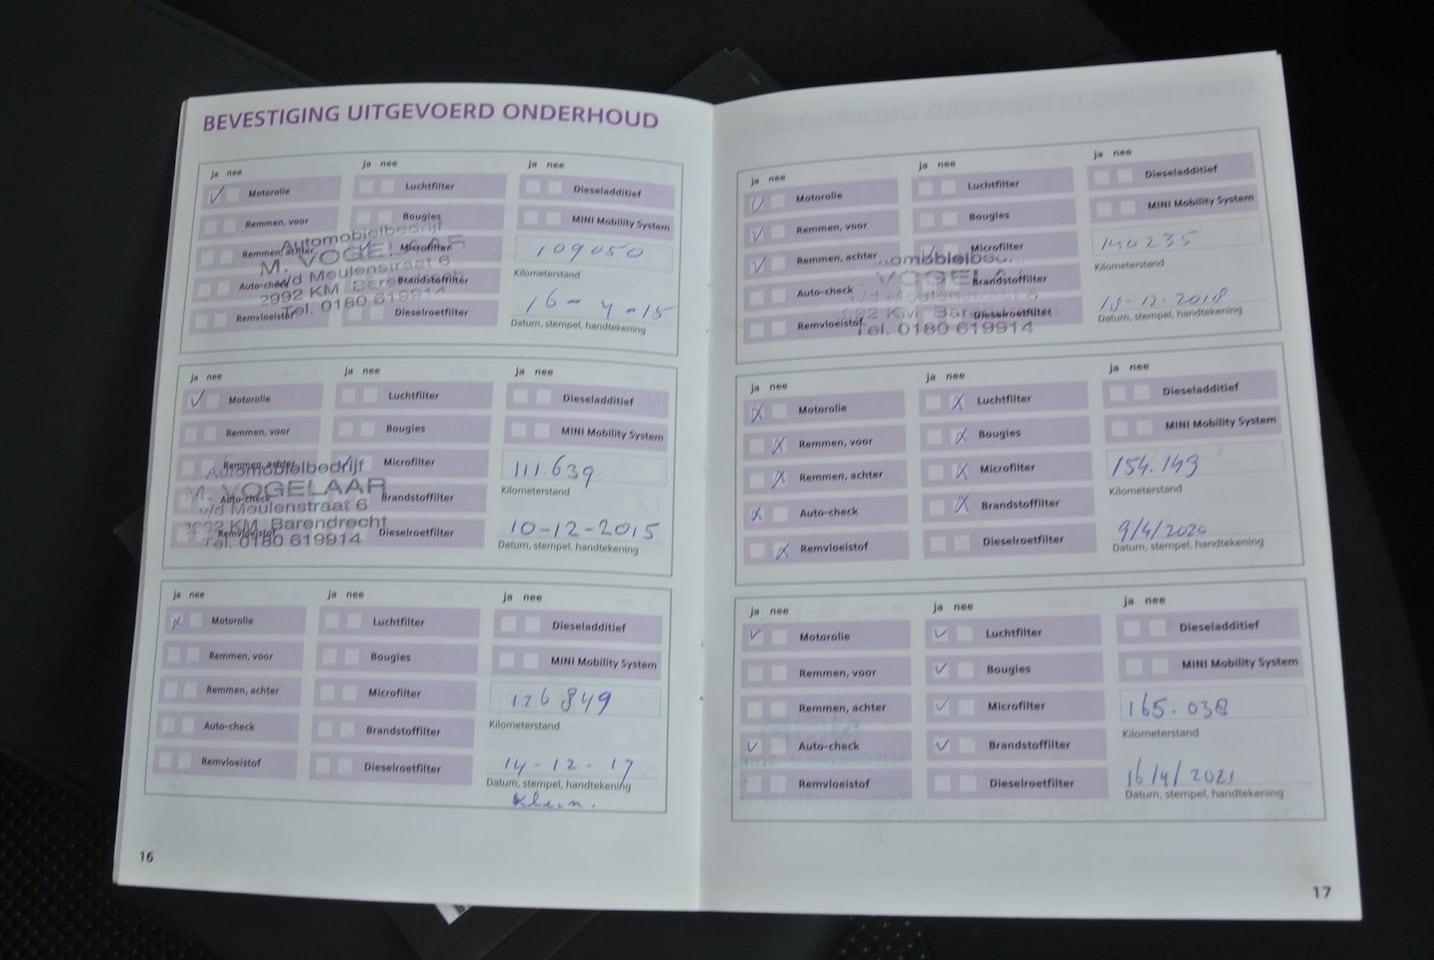 BEVESTIGING UITGEVOERD ONDERHOUD
ja nee
Motorolie
Remmen, voor
Remmen, achter
Auto-check
Remvloeistof
ja nee
Luchtfilter
Bougies
Microfilter
Brandstoffilter
Dieselroetfilter
ja nee
Dieseladditief
MINI Mobility System
109050
Kilometerstand
16-4-15
Datum, stempel, handtekening
Automobielbedrijf
M. VOGELAAR
v/d Meulenstraat 6
2992 KM Barendrecht
Tel. 0180 619914
ja nee
Motorolie
Remmen, voor
Remmen, achter
Auto-check
Remvloeistof
ja nee
Luchtfilter
Bougies
Microfilter
Brandstoffilter
Dieselroetfilter
ja nee
Dieseladditief
MINI Mobility System
111.639
Kilometerstand
10-12-2015
Datum, stempel, handtekening
Automobielbedrijf
M. VOGELAAR
v/d Meulenstraat 6
2992 KM Barendrecht
Tel. 0180 619914
ja nee
Motorolie
Remmen, voor
Remmen, achter
Auto-check
Remvloeistof
ja nee
Luchtfilter
Bougies
Microfilter
Brandstoffilter
Dieselroetfilter
ja nee
Dieseladditief
MINI Mobility System
126849
Kilometerstand
14-12-17
Datum, stempel, handtekening
16
ja nee
Motorolie
Remmen, voor
Remmen, achter
Auto-check
Remvloeistof
ja nee
Luchtfilter
Bougies
Microfilter
Brandstoffilter
Dieselroetfilter
ja nee
Dieseladditief
MINI Mobility System
140235
Kilometerstand
Datum, stempel, handtekening
Tel. 0180 619914
ja nee
Motorolie
Remmen, voor
Remmen, achter
Auto-check
Remvloeistof
ja nee
Luchtfilter
Bougies
Microfilter
Brandstoffilter
Dieselroetfilter
ja nee
Dieseladditief
MINI Mobility System
154.149
Kilometerstand
9/4/2020
Datum, stempel, handtekening
ja nee
Motorolie
Remmen, voor
Remmen, achter
Auto-check
Remvloeistof
ja nee
Luchtfilter
Bougies
Microfilter
Brandstoffilter
Dieselroetfilter
ja nee
Dieseladditief
MINI Mobility System
165.038
Kilometerstand
16/4/2021
Datum, stempel, handtekening
17